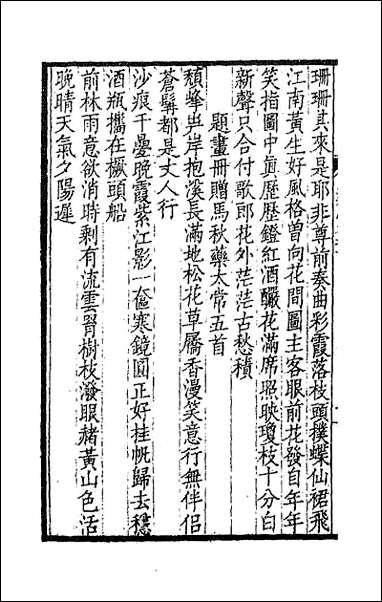 珊珊其來是耶非尊前奏曲彩霞落枝頭撲蝶仙裙飛
江南黃生好風格曽向花間圖主客眼前花發自年年
笑指圖中眞歷歷鐙紅酒釅花滿席照映瓊枝十分白
新聲只合付歌郎花外茫茫古愁積
題畫冊贈馬秋藥太常五首
頹峰㞳岸抱溪長滿地松花草屩香漫笑意行無伴侣
蒼髯都是丈人行
沙痕千疊晚霞紫江影一奩寒鏡圓正好挂帆歸去穩
酒瓶攜在橛頭船
前林雨意欲消時剩有流雲罥樹枝潑眼赭黃山色活
晚晴天氣夕陽遲